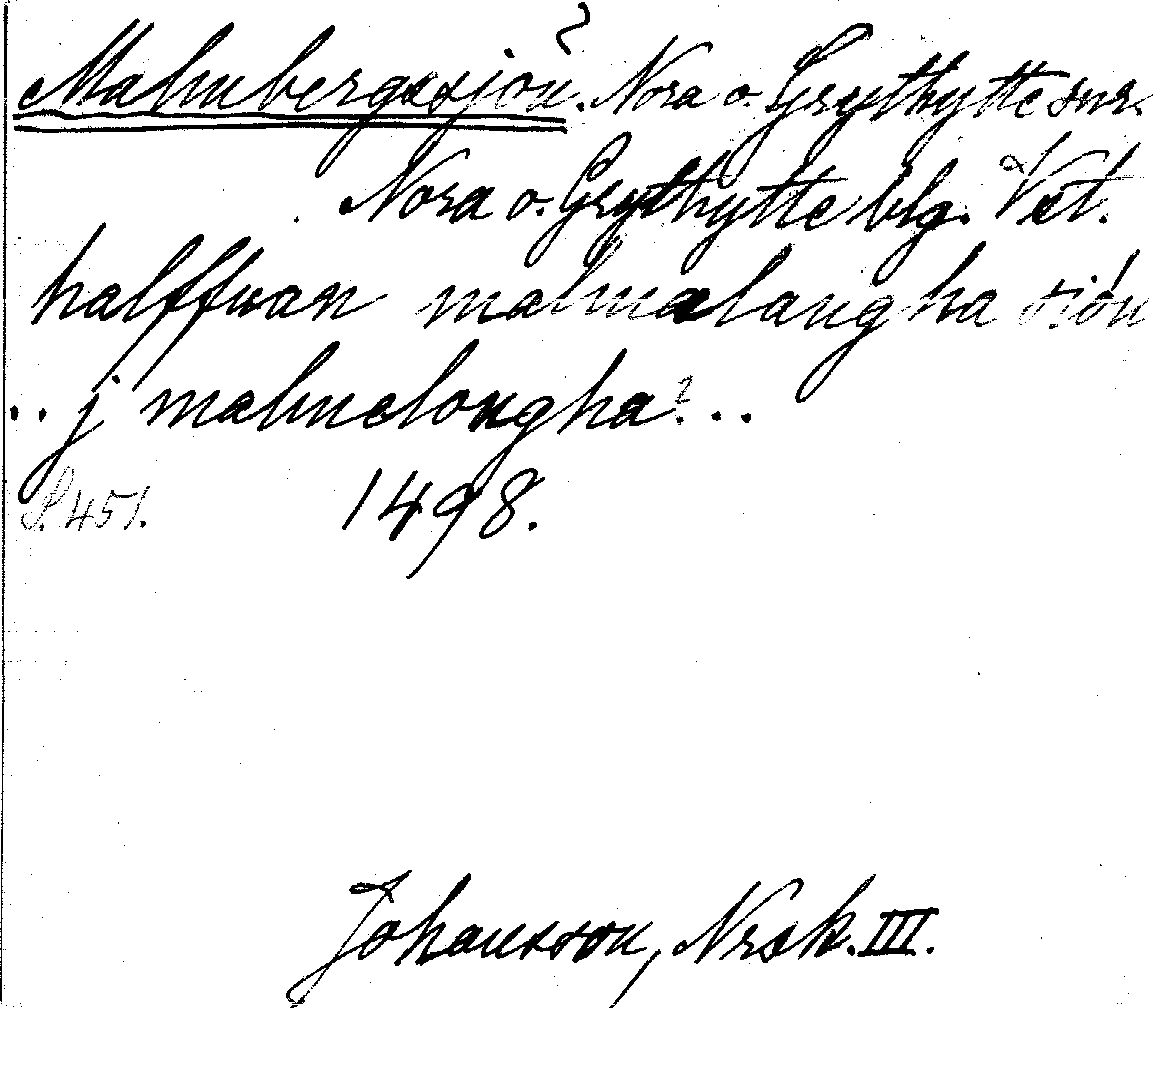 Malmbergssjön?. Nora o. Grythytte snr.
Nora o. Grythytte blg. Vstl.
halffwan malmalangha siön
.. j malmelongha? ..
S. 451. 1498.
Johansson, Nrsk. III.